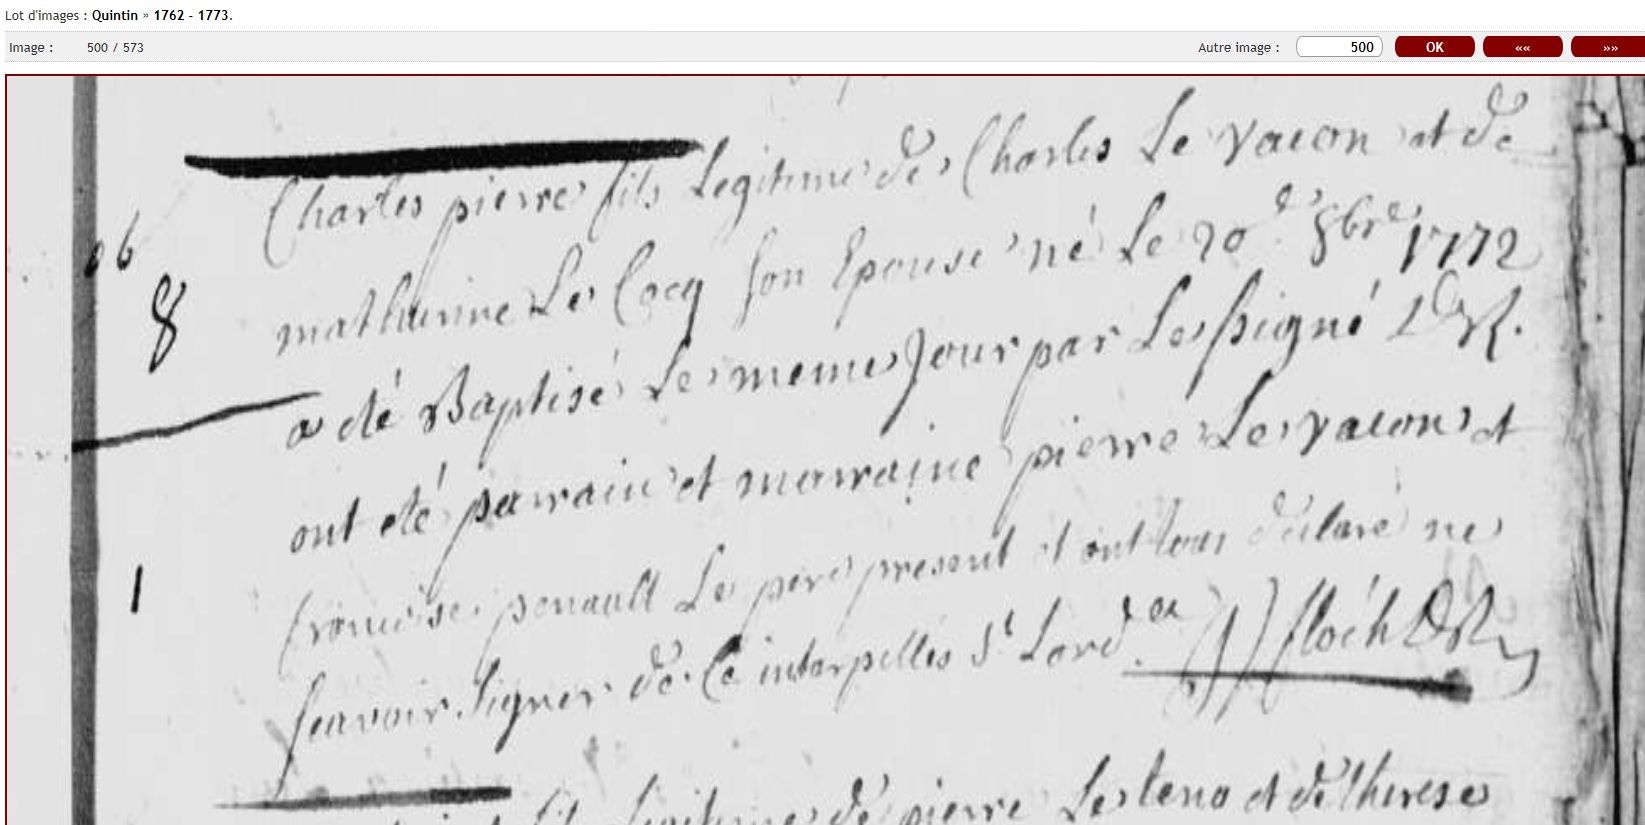 Lot d'images : Quintin » 1762 - 1773.
Image : 500 / 573 Autre image : 500 OK «« »»
Charles pierre fils Legitime de Charles Le vacon et de
06
mathurine Le Cocq son Epouse né Le 20 8bre 1772
8
a eté Baptisé Le meme Jour par Le signé
ont eté parrain et marraine pierre Le vacon et
francoise Le pere present et ont tous declaré ne
1
scavoir signer de Ce interpellés st Lord floch
fils Legitime de pierre Le et de therese